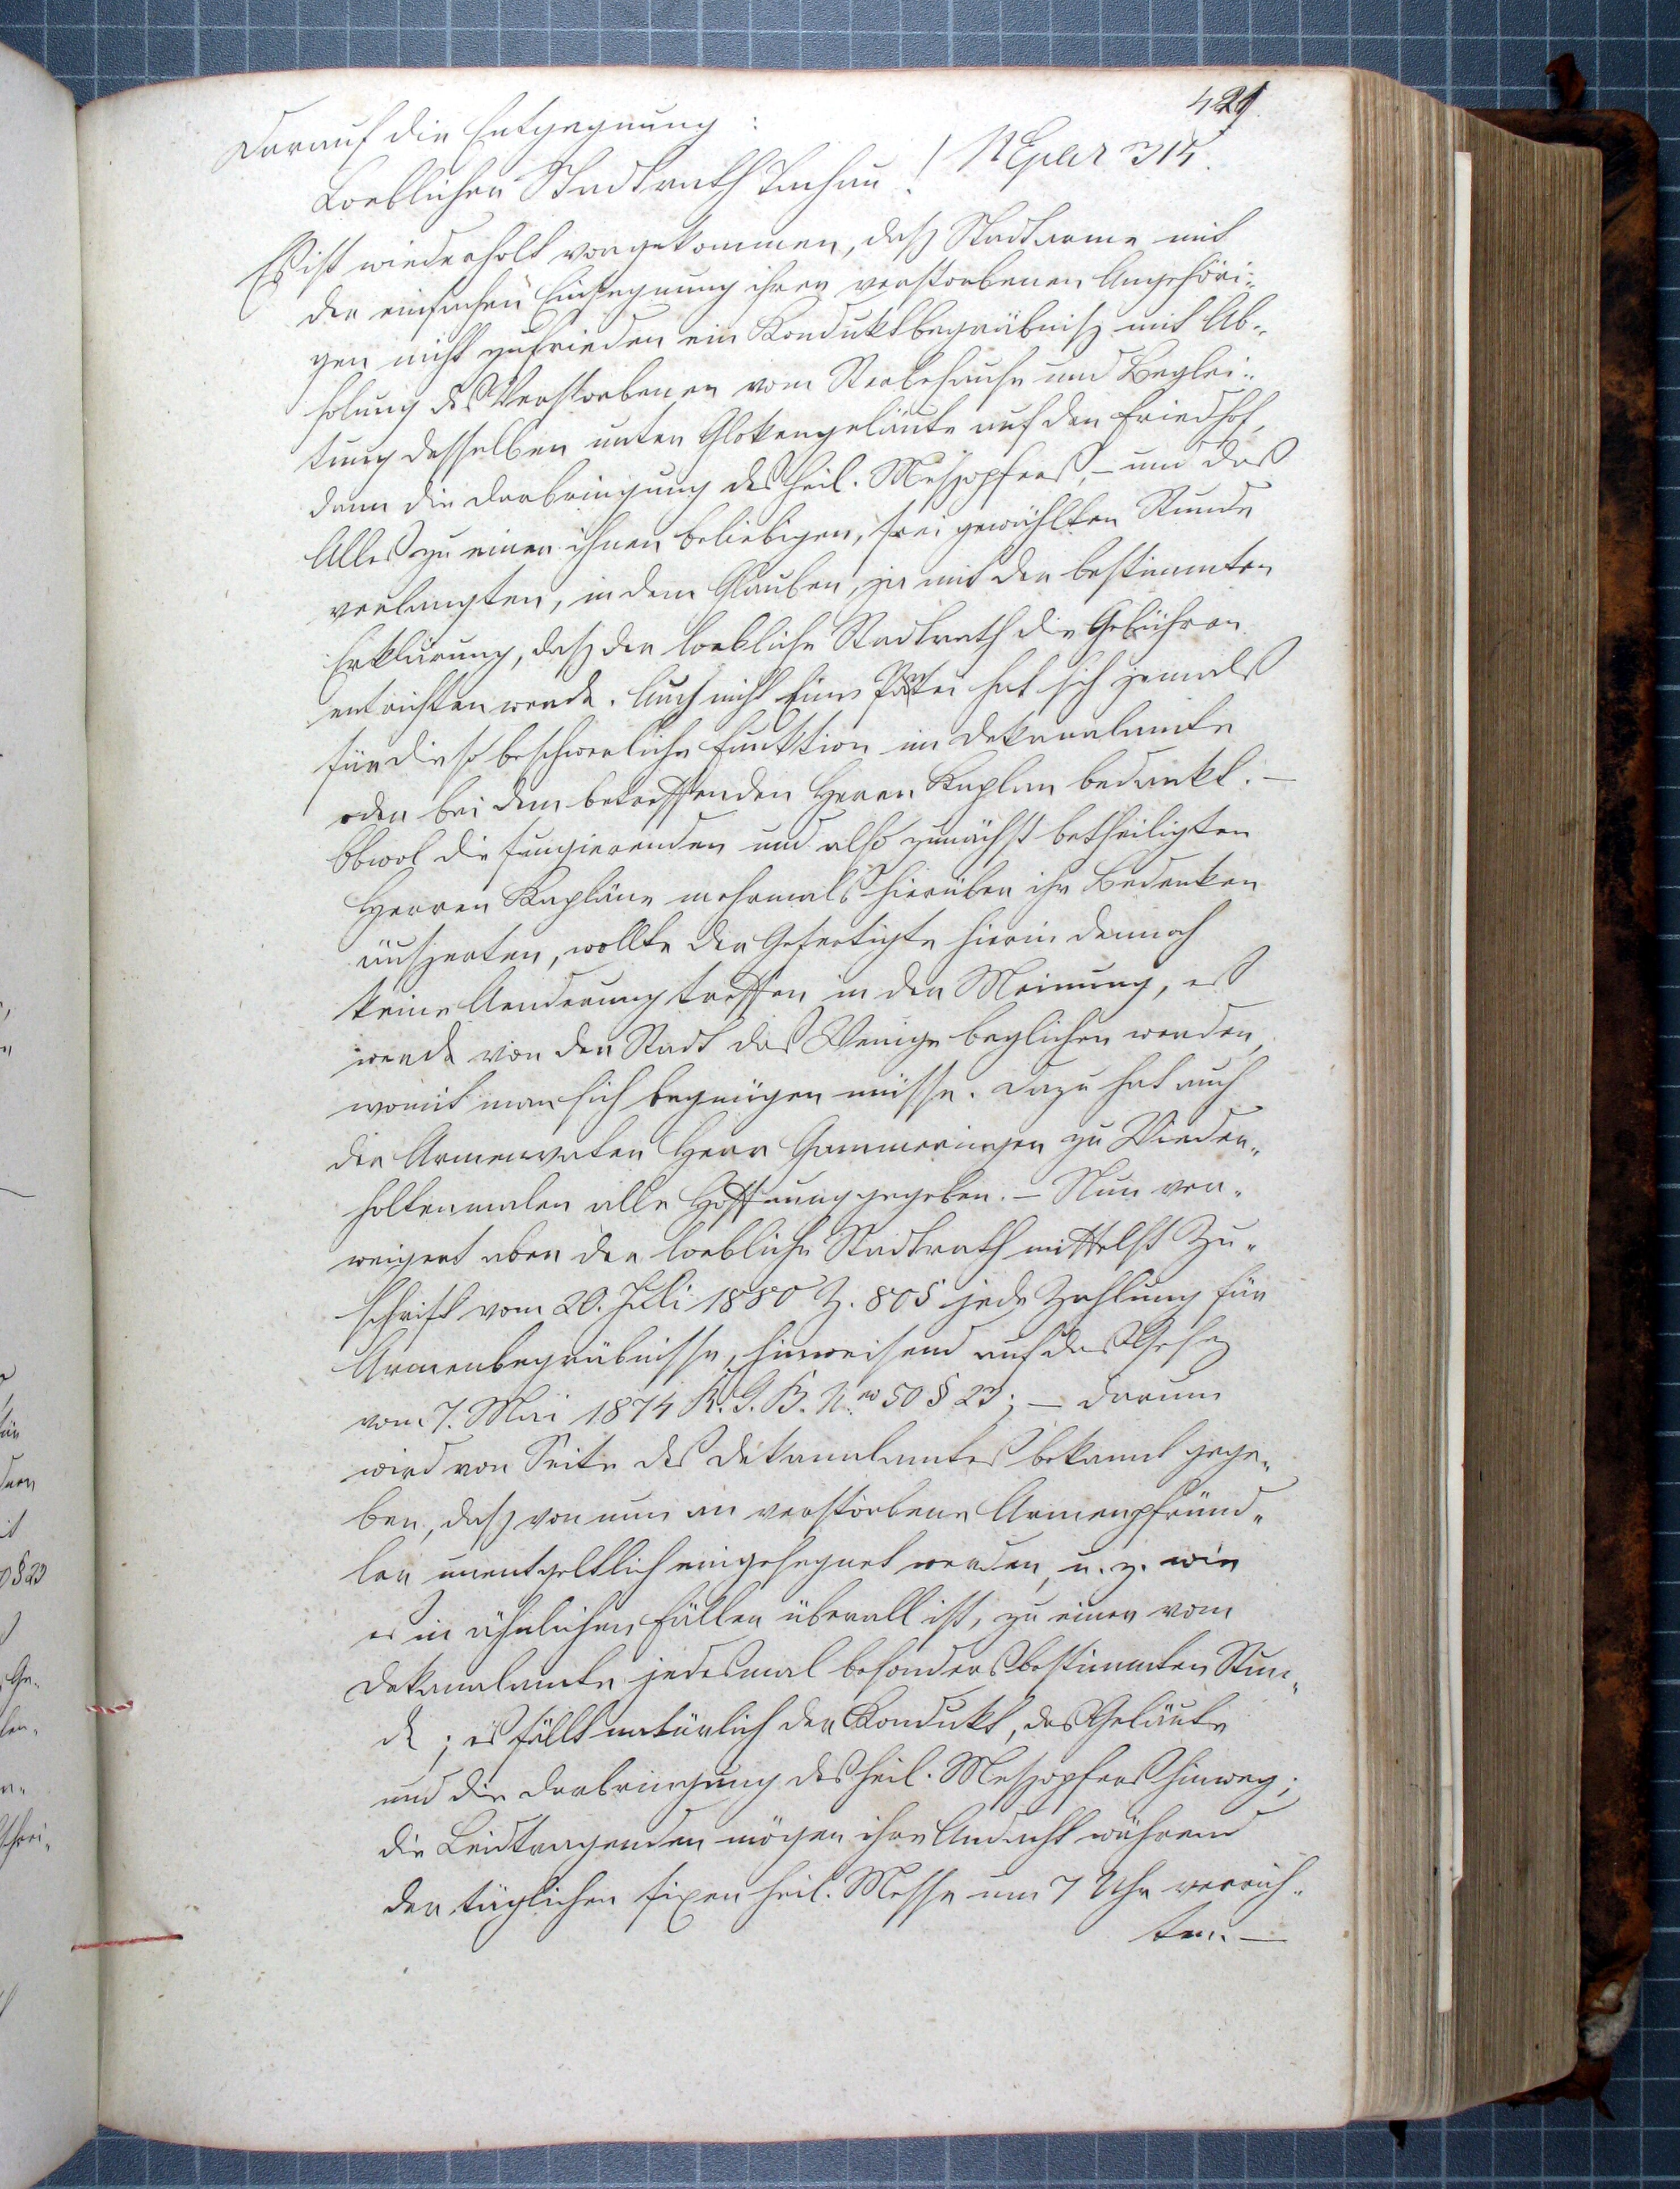 421.
Darauf die Entgegnung:
Loeblicher Stadtrath Tachau! NExh 315.
Es ist wiederholt vorgekommen, daß Stadtarme mit
der einfachen Einsegnung ihrer verstorbenen Angehöri-
gen nicht zufrieden ein Konduktbegräbniß mit Ab-
holung des Verstorbenen vom Sterbehause und Beglei-
tung desselben unter Glokengeläute auf den Friedhof,
dann die Darbringung des heil. Meßopfers, – und das
Alles zu einer ihnen beliebigen, frei gewählten Stunde
verlangten, in dem Glauben, ja mit der bestimmten
Erklärung, daß der loebliche Stadtrath die Gebühren
entrichten werde. Auch nicht Eine Partei hat sich jemals
für diese beschwerliche Funktion im Dekanalamte
oder bei dem betreffenden Herrn Kaplan bedankt. –
Obwol die fungierenden und also zunächst betheiligten
Herren Kapläne mehrmals hierüber ihr Bedenken
äußerten, wollte der Gefertigte hierin dennoch
keine Aenderung treffen in der Meinung, es
werde von der Stadt das Wenige beglichen werden,
womit man sich begnügen müsse. Dazu hat auch
der Armenvater Herr Gammeringer zu Wieder-
holtenmalen alle Hoffnung gegeben. – Nun ver-
weigert aber der loebliche Stadtrath mittelst Zu-
schrift vom 20. Juli 1880 Z. 805 jede Zahlung für
Armenbegräbnisse, hinweisend auf das Gesez
vom 7. Mai 1874 R. G. B. Nro 50 § 23; – Darum
wird von Seite des Dekanalamtes bekannt gege-
ben, daß von nun an verstorbene Armenpfründ-
ler unentgeltlich eingesegnet werden, u. z. wie
es in ähnlichen Fällen überall ist, zu einer vom
Dekanalamte jedesmal besonders bestimmten Stun-
de; es fällt natürlich der Kondukt, das Geläute
und die Darbringung des heil. Meßopfers hinweg;
die Leidtragenden mögen ihre Andacht während
der täglichen fixen heil. Messe um 7 Uhr verrich-
ten. –